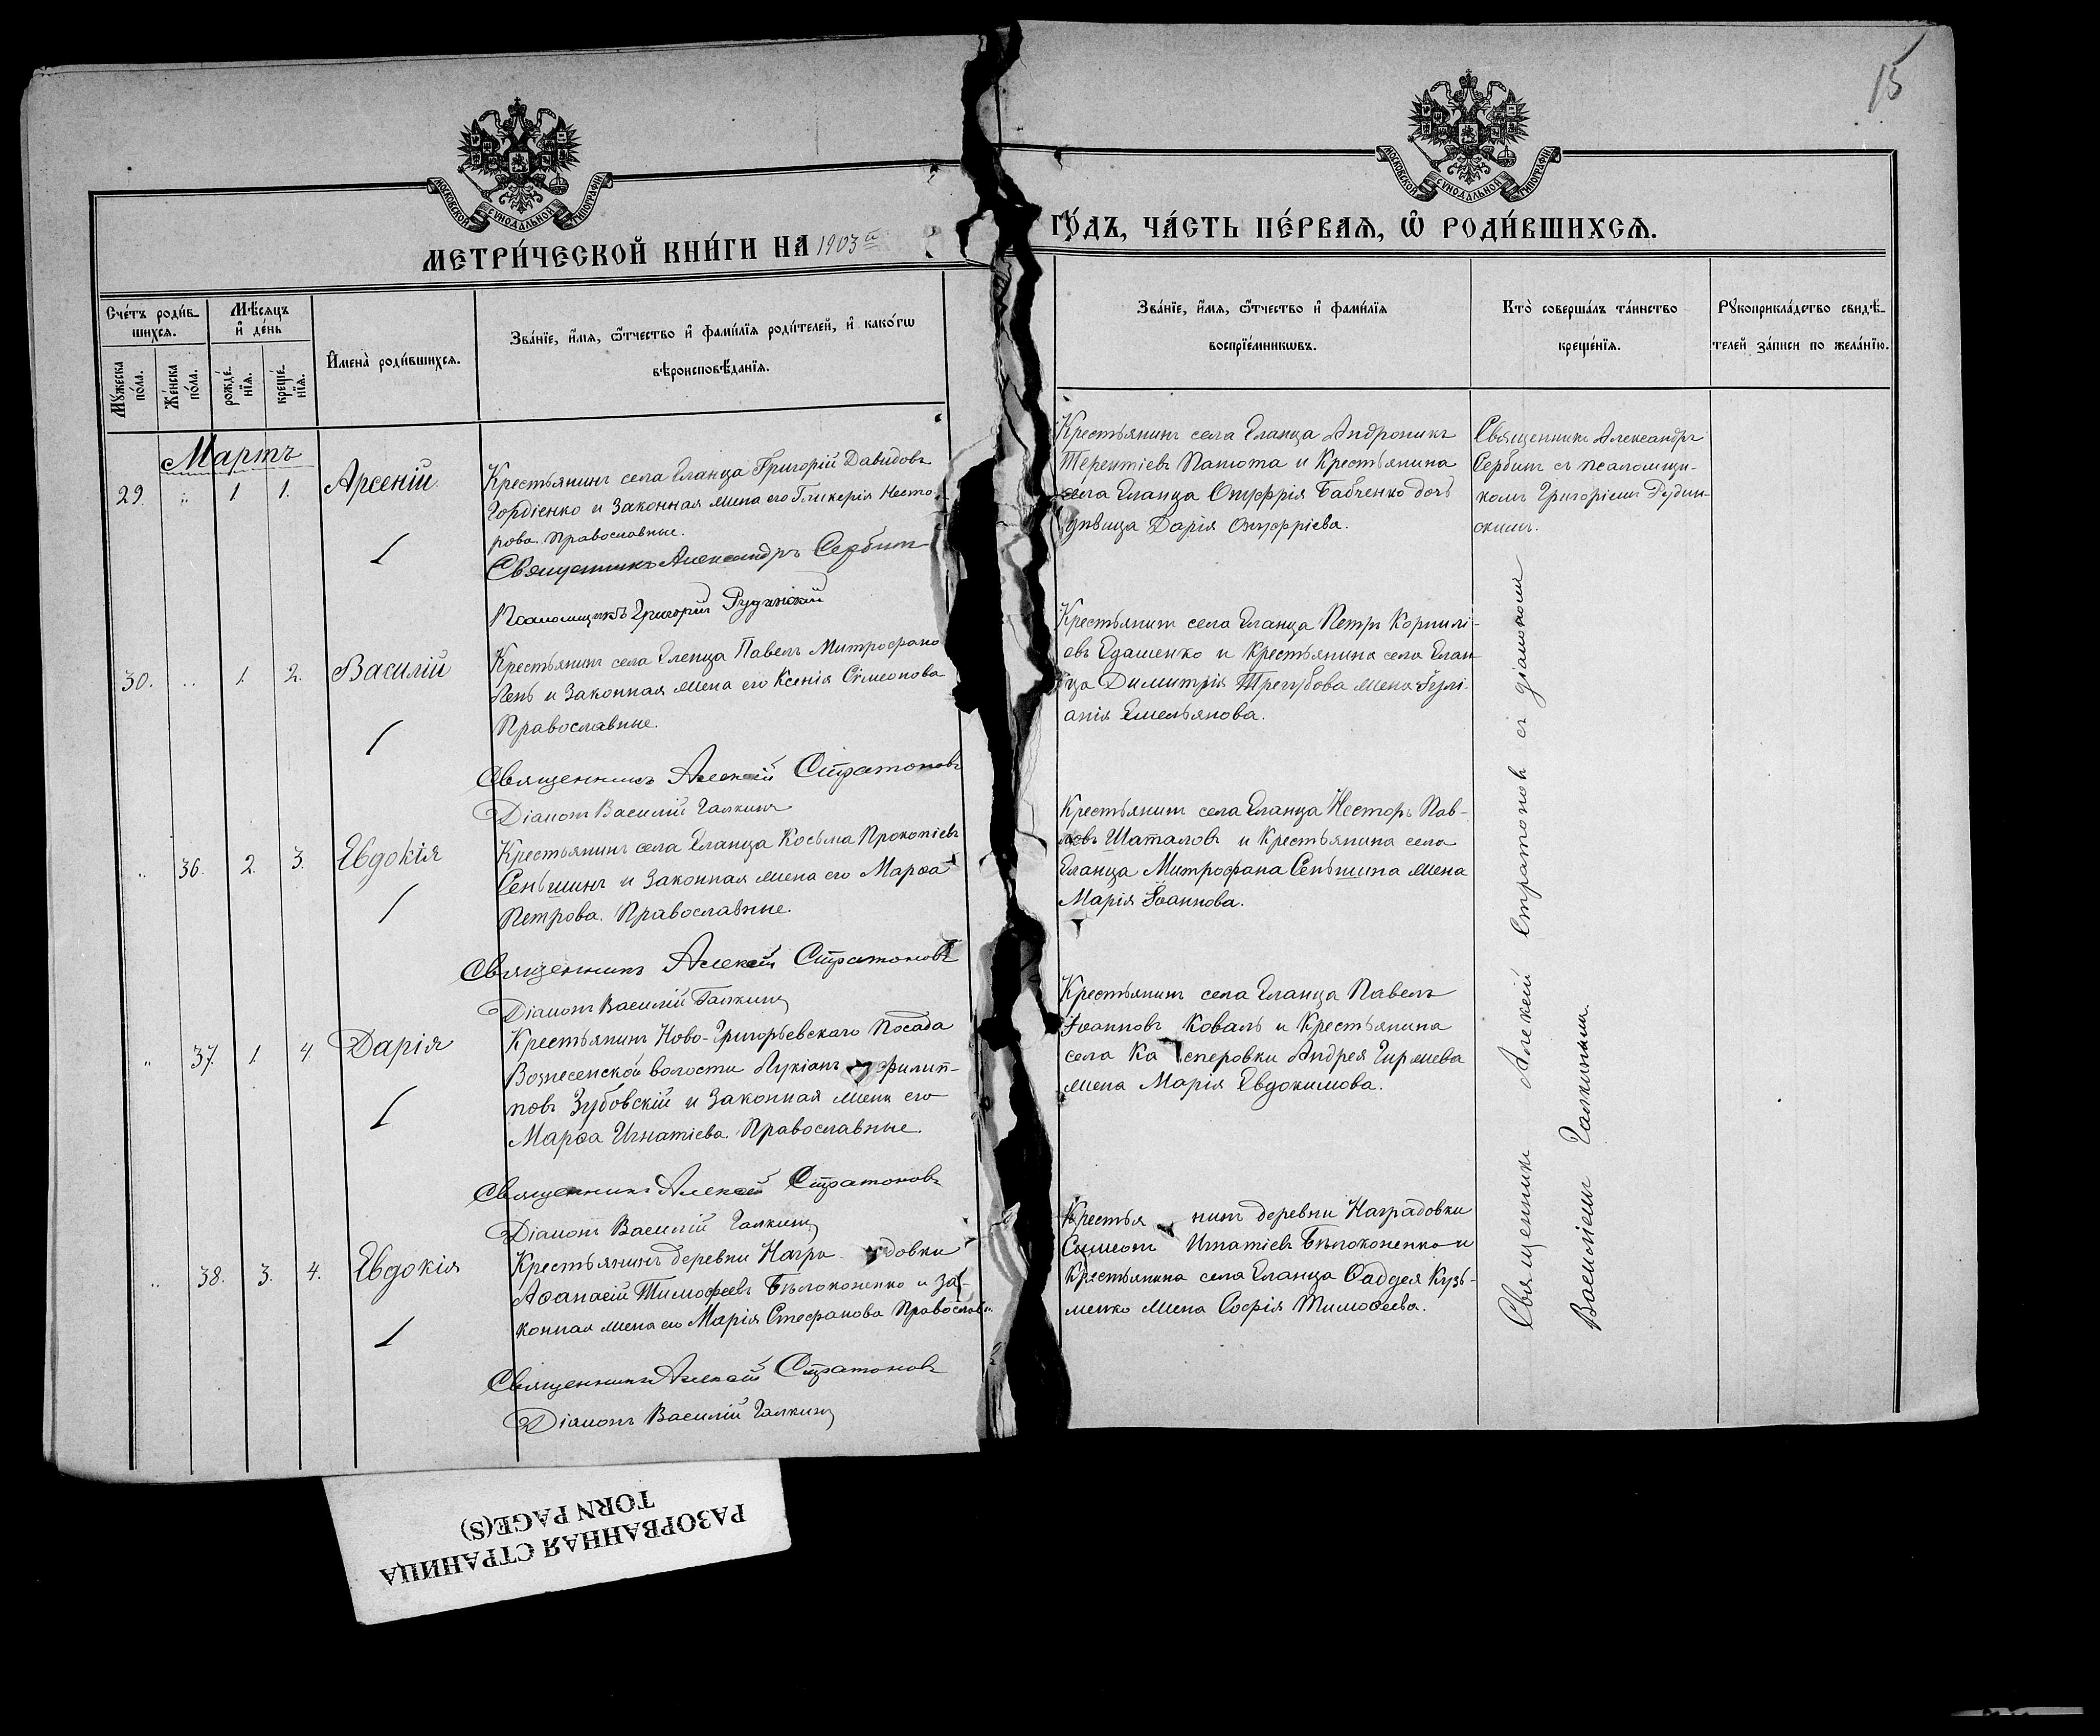 15
МОСКОВСКОЙ СѴНОДАЛЬНОЙ ТИПОГРАФІИ
МОСКОВСКОЙ СѴНОДАЛЬНОЙ ТИПОГРАФІИ
МЕТРИ́ЧЕСКОЙ КНИ́ГИ НА 1903 й
ГО́ДЪ, ЧА́СТЬ ПЕ́РВАѦ, Ѡ҆ РОДИ́ВШИХСѦ.
Сче́тъ роди́в-
шихсѧ.
Мѣ́сѧцъ
и҆ де́нь
Мꙋ́жеска
по́ла.
Же́нска
по́ла.
рожде́-
нїѧ.
креще́-
нїѧ.
И҆мена̀ роди́вшихсѧ.
Зва́нїе, и҆́мѧ, ѻ҆́тчество и҆ фами́лїѧ роди́телей, и҆ како́гѡ
вѣроисповѣ́данїѧ.
Зва́нїе, и҆́мѧ, ѻ҆́тчество и҆ фами́лїѧ
воспрїе́мникѡвъ.
Кто̀ соверша́лъ та́инство
креще́нїѧ.
Рꙋкоприкла́дство свидѣ́-
телей за́писи по жела́нїю.
Мартъ
29. " 1 1. Арсеній
Крестьянинъ села Еланца Григорій Давидовъ
Гордіенко и Законная жена его Гликерія Несто-
рова. Православные.
Священникъ Александръ Сербин
Псаломщикъ Григорій Рудинскій
Крестьянинъ села Еланца Андроникъ
Терентіевъ Папота и Крестьянина
села Еланца Онуфрія Бабченко дочь
дѣвица Дарія Онуфріева.
Священникъ Александръ
Сербин съ псаломщи-
комъ Григоріемъ Рудин-
скимъ.
30. " 1 2. Василій
Крестьянинъ села Еланца Павелъ Митрофано
Лень и Законная жена его Ксенія Сімеонова
Православные.
Священникъ Алексій Стратоновъ
Діаконъ Василій Галкинъ
Крестьянинъ села Еланца Петръ Корнилі-
евъ Едашенко и Крестьянина села Елан-
ца Димитрія Трегубова жена Іулі-
анія Емельянова.
" 36. 2. 3. Евдокія
Крестьянинъ села Еланца Косьма Прокопіевъ
Сеньшинъ и Законная жена его Марѳа
Петрова. Православные.
Священникъ Алексій Стратоновъ
Діаконъ Василій Галкинъ
Крестьянинъ села Еланца Несторъ Пав-
ловъ Шаталовъ и Крестьянина села
Еланца Митрофана Сеньшина жена
Марія Іоаннова.
" 37. 1 4 Дарія
Крестьянинъ Ново-Григорьевскаго Посада
Вознесенской волости Лукіанъ Филип-
повъ Зубовскій и Законная жена его
Марѳа Игнатіева. Православные.
Священникъ Алексій Стратоновъ
Діаконъ Василій Галкинъ
Крестьянинъ села Еланца Павелъ
Іоанновъ Коваль и Крестьянина
села Касперовки Андрея Гиржева
жена Марія Евдокимова.
" 38. 3. 4. Евдокія
Крестьянинъ деревни Наградовки
Аѳанасій Тимофеевъ Бѣлоконенко и За-
конная жена его Марія Стефанова Православн.
Священникъ Алексій Стратоновъ
Діаконъ Василій Галкинъ
Крестьянинъ деревни Наградовки
Симеонъ Игнатіевъ Бѣлоконенко и
Крестьянина села Еланца Ѳаддея Кузь-
менко жена Софія Тимоѳеева.
Священникъ Алексій Стратоновъ съ діакономъ
Василіемъ Галкинымъ.
РАЗОРВАННАЯ СТРАНИЦА
TORN PAGE(S)